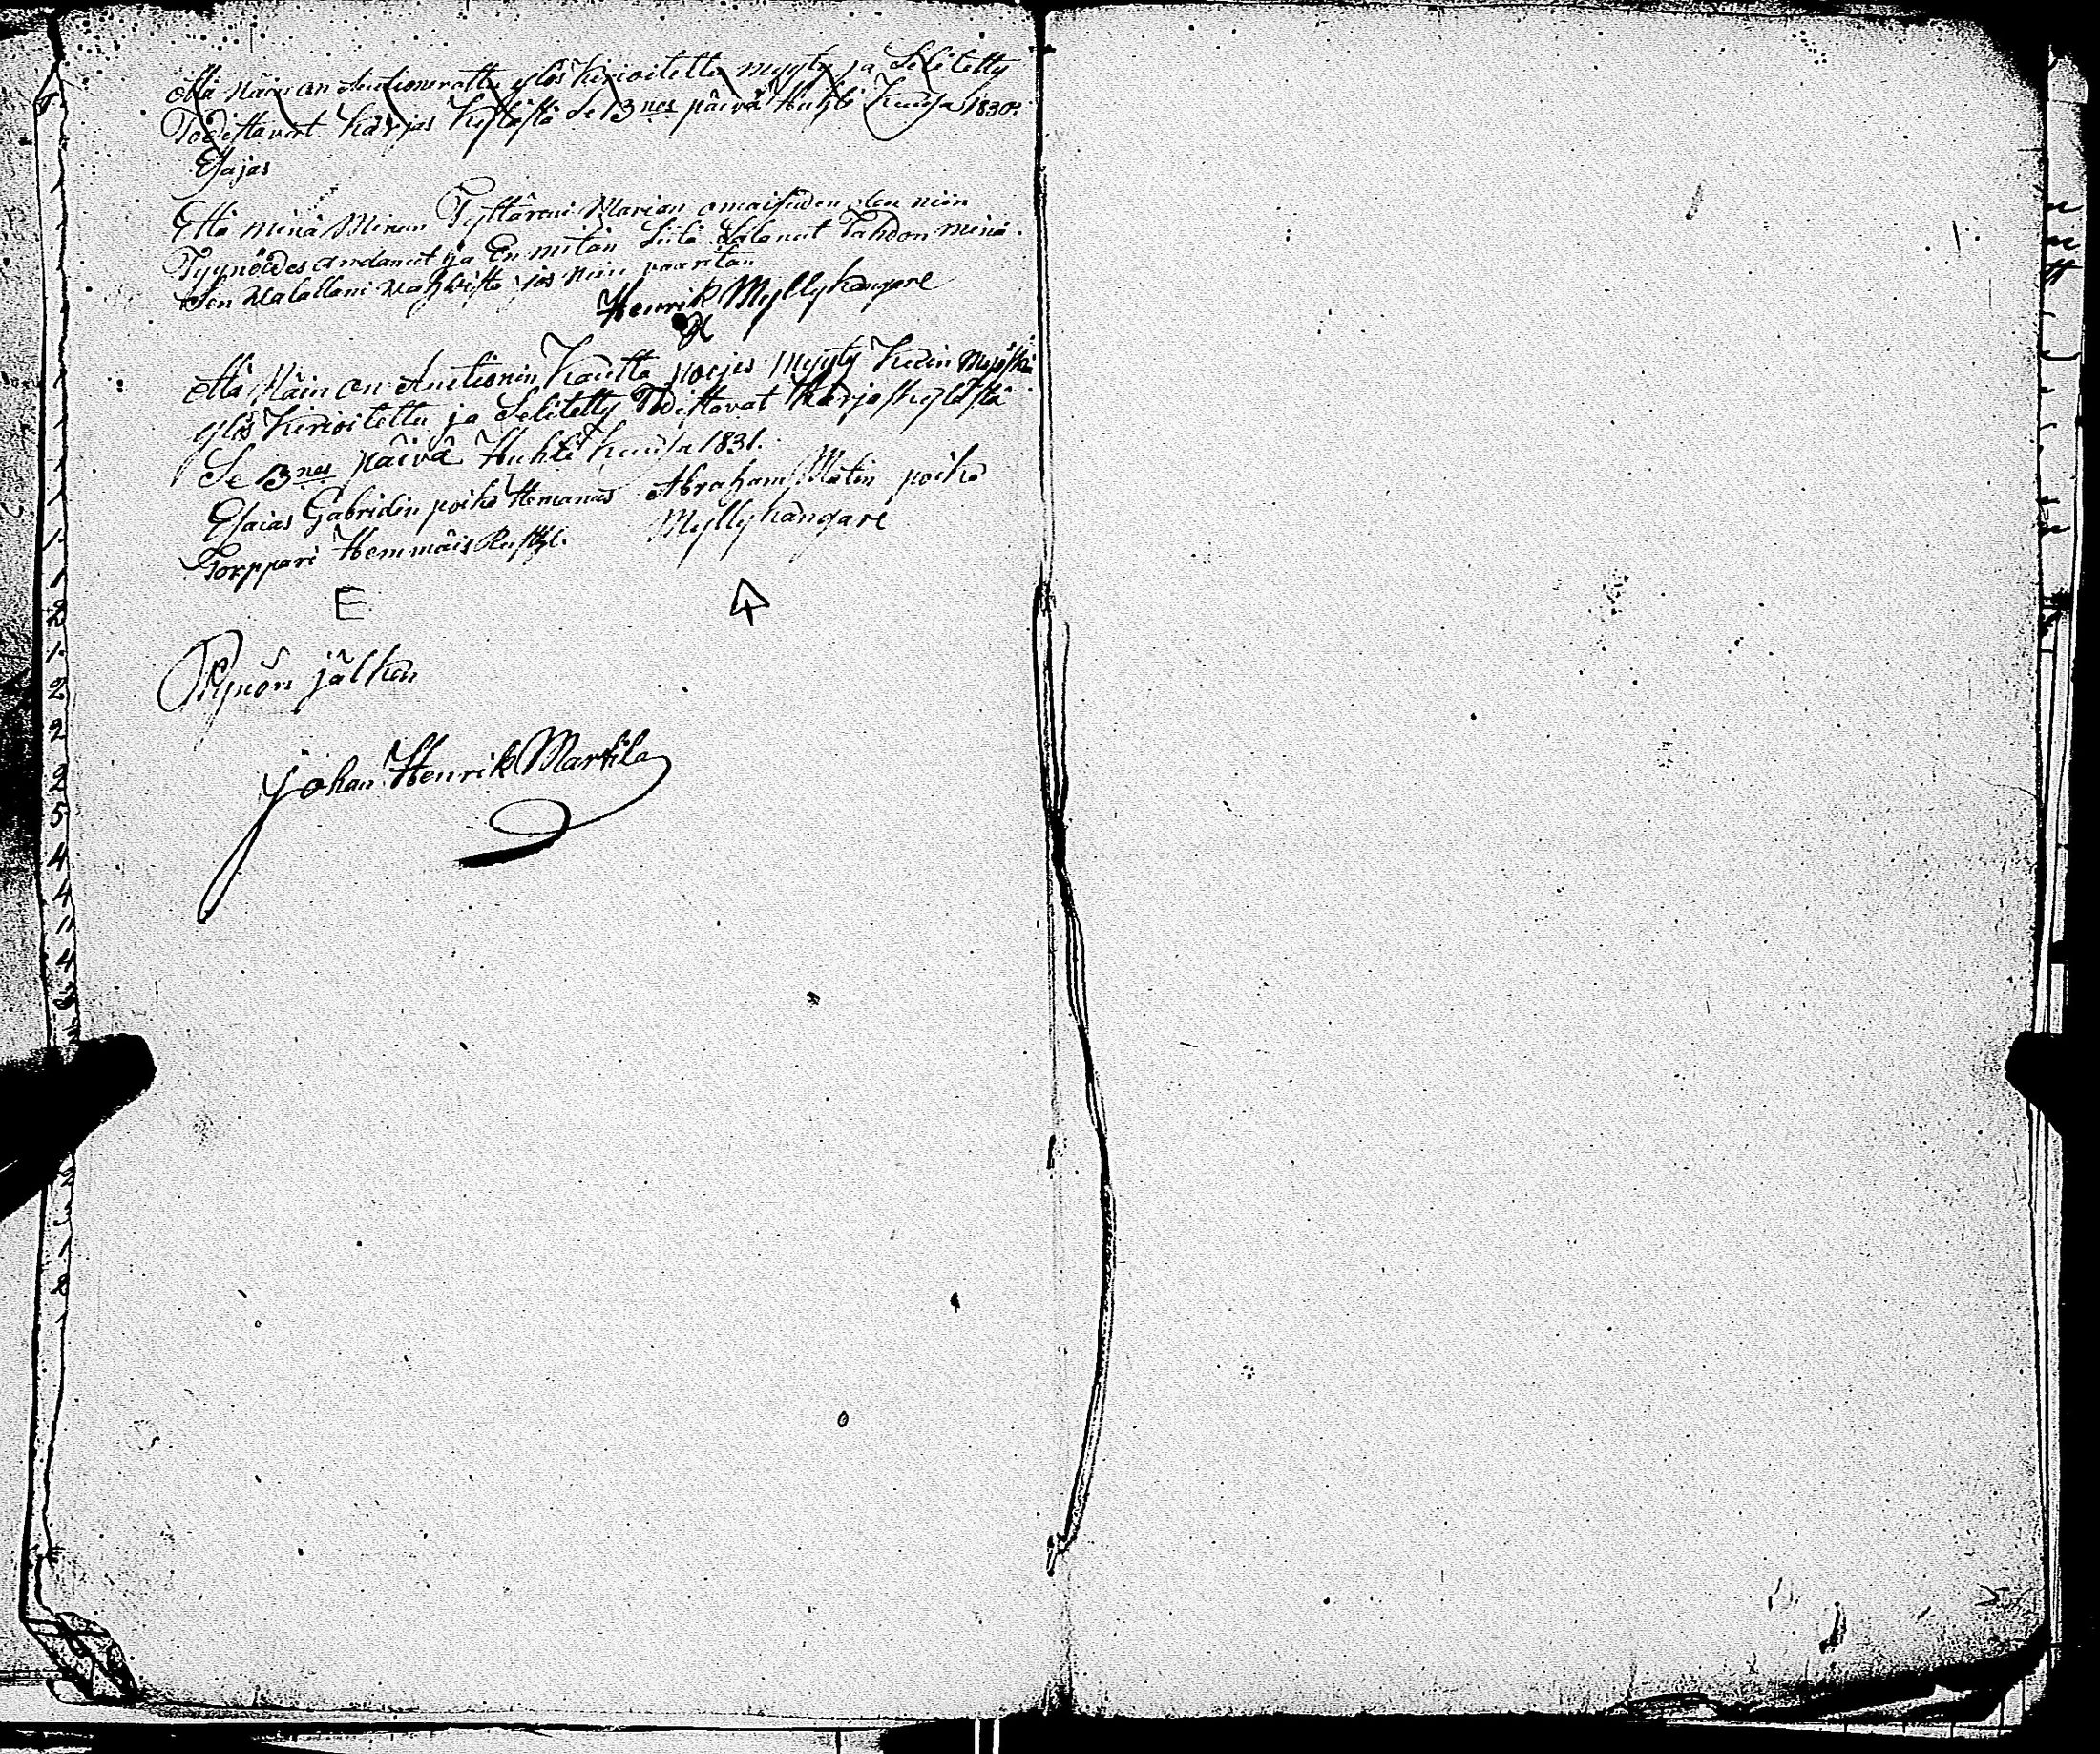 että näin on Auctionerattu ylös kirioitettu myyty ja Selitetty
Todistavat Karjas Kylästä Se 13 nes päivä Huhti Kuusa 1830.
Esajas
Että minä Minun Tyttäreni Marian omaisuden olen niin
Tyynöides andanut ja En mitän Siitä Salanut Tahdon minä
Sen Walallani wahwista jos niin vaaritan
Henrik Myllykangare
että Näin on Auctionin Kautta poijes myyty kuin myöskin
ylös kirioitettu ja Selitetty Todistavat Karjaskylästä
Se 13 nes päivä Huhti Kuusa 1831.
Esaias Gabrielin poika Hemanus Abraham Matin poika
Torppari Hemmäis Rusth. Myllykangare
E
Pyynön jälken
Johan Henrik Martila